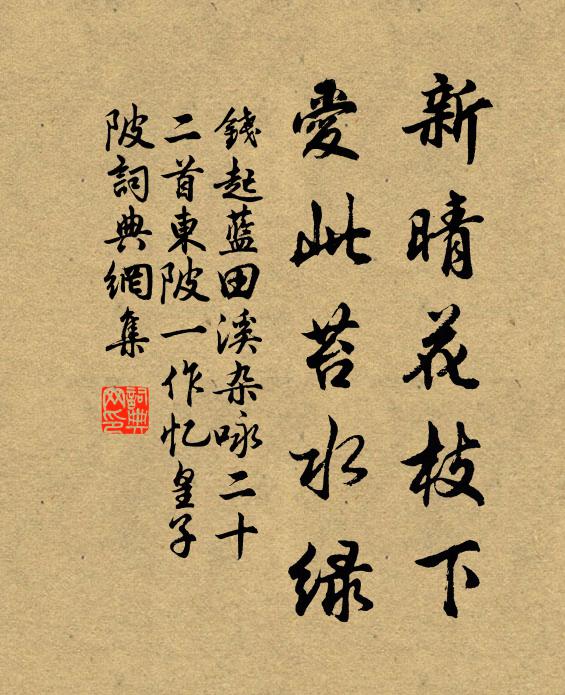 新晴花枝下
愛此苔水綠
錢起藍田溪杂咏二十
二首東陂一作忆皇子
陂詞典網集
詞典
网印